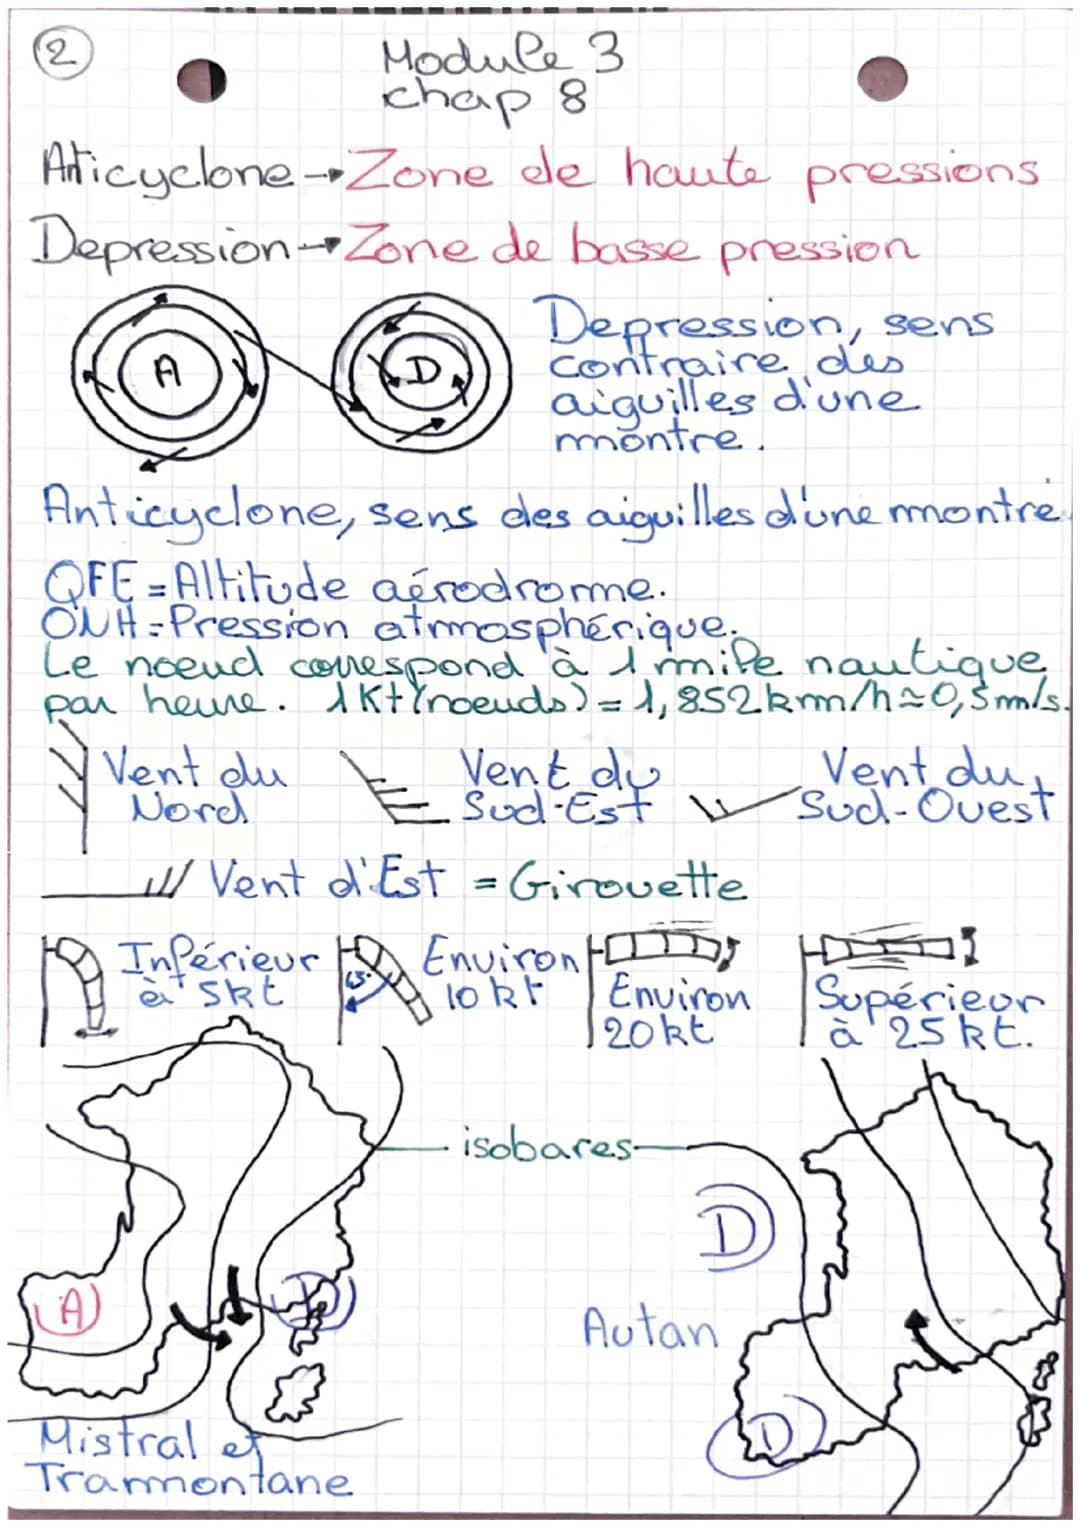 2
Module 3
chap 8
Anticyclone → Zone de haute pressions
Depression → Zone de basse pression
A
D
Depression, sens
contraire des
aiguilles d'une
montre.
Anticyclone, sens des aiguilles d'une montre
QFE = Altitude aérodrome.
QNH = Pression atmosphérique.
Le noeud correspond à 1 mile nautique
par heure. 1Kt (noeuds) = 1,852km/h ≈ 0,5m/s.
Vent du
Nord
Vent du
Sud-Est
Vent du
Sud-Ouest
Vent d'Est = Girouette
Inférieur
à 5kt
45°
Environ
10kt
Environ
20kt
Supérieur
à 25kt.
isobares
D
A
D
Autan
D
Mistral et
Tramontane